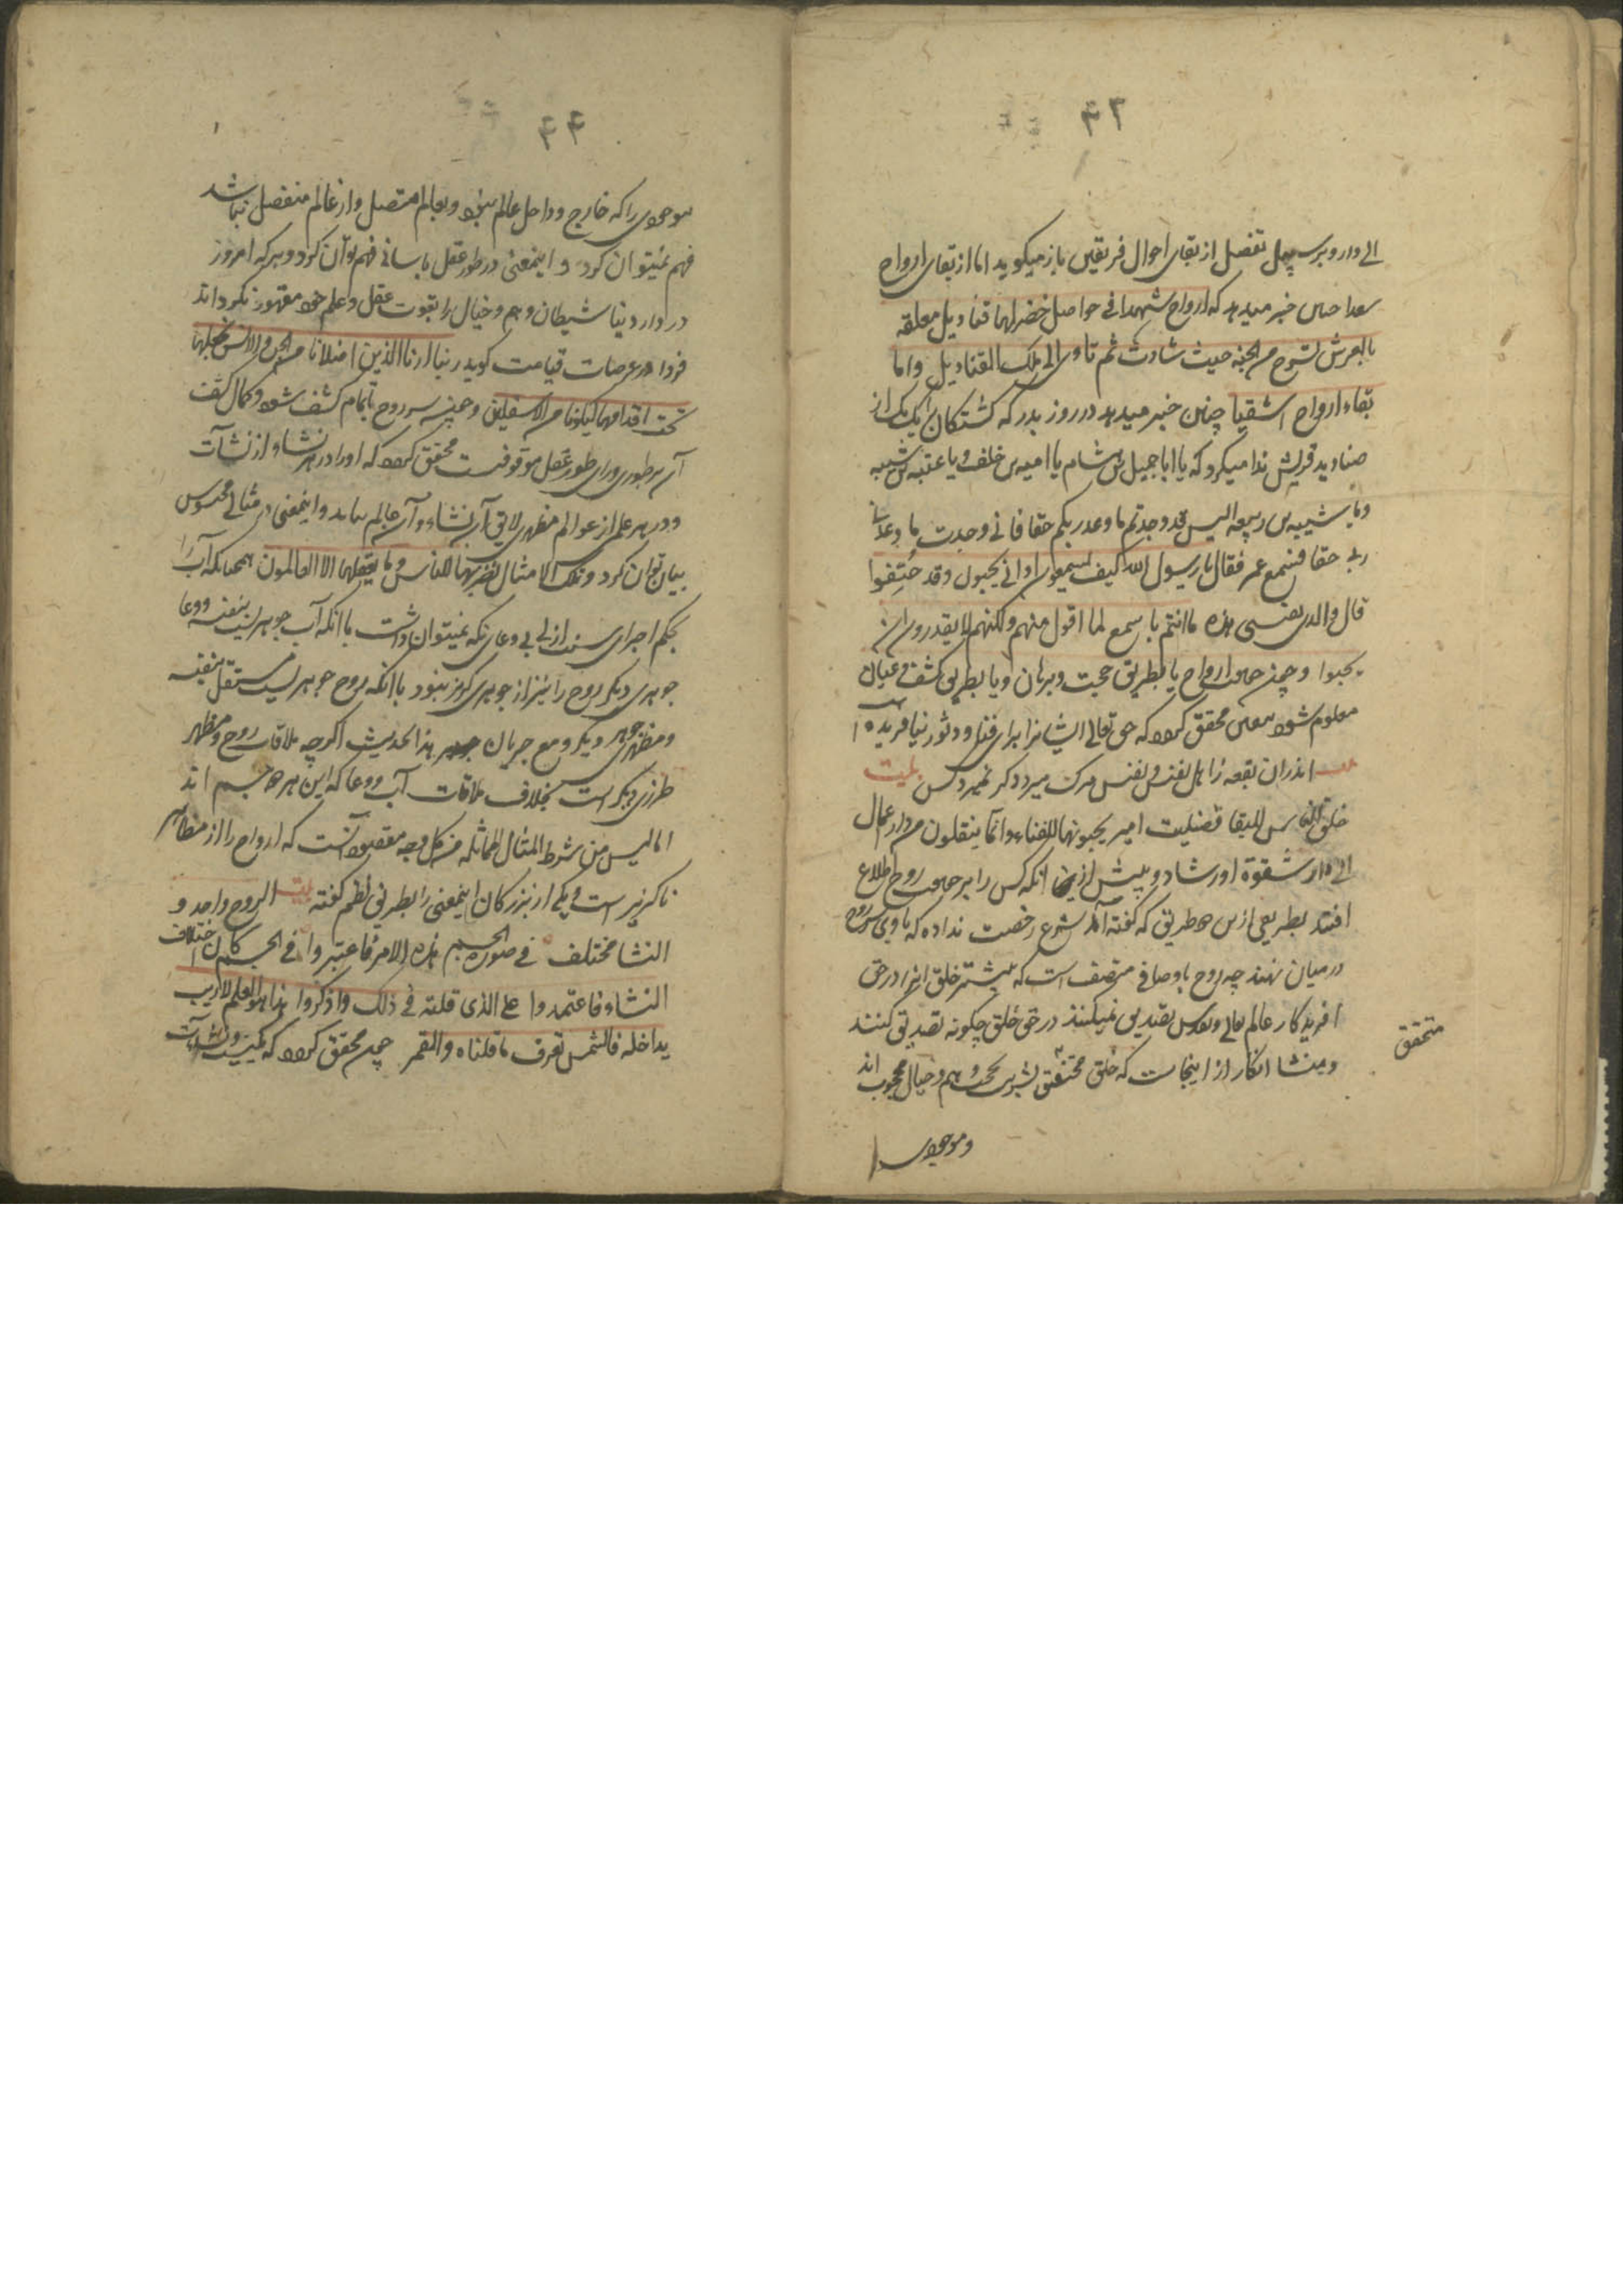 ۴۳
الی دار و بر سبیل تفصیل از بقای احوال فریقین باز میگوید اما از بقای ارواح
سعدا چنین خبر میدهد که ارواح شهدا فی حواصل خضر لها قنادیل معلقه
بالعرش تسرح من الجنه حیث شاءت ثم تاوی الی تلک القنادیل و اما
بقاء ارواح اشقیا چنین خبر میدهد در روز بدر که کشتکان یک یک از
صنادید قریش ندا میکرد که یا ابا جهل بن هشام یا امیه بن خلف و یا عتبه بن شیبه
و یا شیبه بن ربیعه الیس قد وجدتم ما وعد ربکم حقا فانی وجدت ما وعدنی
ربی حقا فسمع عمر فقال یا رسول الله کیف یسمعون و انی یجیبون و قد جیفوا
قال والذی نفسی بیده ما انتم باسمع لما اقول منهم ولکنهم لا یقدرون ان
یجیبوا و چون حقیقت ارواح یا بطریق حجت و برهان و یا بطریق کشف و عیان
معلوم شود بیقین محقق کردد که حق تعالی ایشانرا برای فنا و دثور نیافریده ا
اندران بقعه ز اهل نفس و نفس مرک میرد دکر نمیرد کس بیت
خلق الناس للبقا فضلت امیر یحبونها للفناء و انما ینقلون من دار اعمال
الی دار شقوة او رشاد و پیش ازین انکه کس را بر حقیقت روح اطلاع
افتد بطریقی ازین دو طریق که کفته آمد شرع رخصت نداده که با وی سر روح
در میان نهند چه روح باوصافی متصف است که بیشتر خلق آنرا در حق
افریدکار عالم تعالی و تقدس تصدیق نمیکنند در حق خلق چکونه تصدیق کنند
و منشا انکار از اینجاست که خلق محتقق بشری تحت وهم و خیال محجوب اند
متحقق
و موجودی را
۴۴
موجودی را که خارج و داخل عالم نبود و بعالم متصل و از عالم منفصل نباشد
فهم نمیتوان کرد و اینمعنی در طور عقل باسانی فهم توان کرد و هر که امروز
در دار دنیا شیطان وهم و خیال را بقوت عقل و علم خود مقهور نکرداند
فردا در عرصات قیامت کوید ربنا ارنا الذین اضلانا من الجن و الانس نجعلهما
تحت اقدامهما لیکونا من الاسفلین و چون سر روح بتمام کشف شود و کمال کشف
آن بر طوری ورای طور عقل موقوفست محقق کردد که او را در هر نشاء از نشآت
و در هر عالم از عوالم مظهری لایق آن نشاء و آن عالم بباید و اینمعنی در مثالی محسوس
بیان توان کرد و تلک الامثال نضربها للناس و ما یعقلها الا العالمون همچنانکه آب را
بحکم اجرای سنت ازلی بی وعا نکه نمیتوان داشت با انکه آب جوهریست بنفسه و وعا
جوهری دیکر روح را نیز از جوهری کزیر نبود با انکه روح جوهریست مستقل بنفسه
و مظهر جوهری دیکر و مع جریان هذا الحدیث اکرچه ملاقات روح و مظهر
طرزی دیکر است بخلاف ملاقات آب و وعا که این هر دو جسم اند
اما لیس من شرط المثال المماثله من کل وجه مقصود آنست که ارواح را از مظاهر
ناکزیر است و یکی از بزرکان اینمعنی را بطریق نظم کفته بیت الروح واحد و
النشا مختلف فی صورة الجسم هذا الامر فاعتبروا فی الجسم کان اختلاف
النشاء فاعتمدوا علی الذی قلته فی ذلک و اذکروا هذا هو العلم لا ریب
یداخله فالشمس تعرف ما قلناه و القمر چون محقق کردد که کمیت نشآت